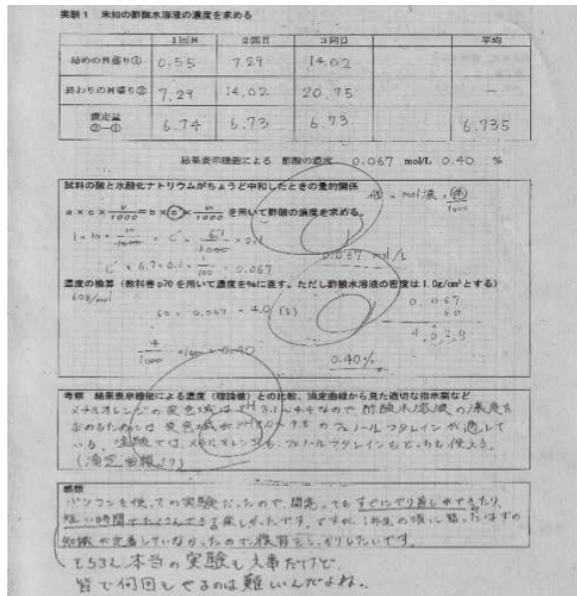 実験1 未知の酢酸水溶液の濃度を求める
1回目 2回目 3回目 平均
始めの目盛り① 0.55 7.29 14.02
終わりの目盛り② 7.29 14.02 20.75 —
滴定量 ②－① 6.74 6.73 6.73 6.735
結果表示機能による 酢酸の濃度 0.067 mol/L 0.40 %
試料の酸と水酸化ナトリウムがちょうど中和したときの量的関係
を用いて酢酸の濃度を求める。
0.067 mol/L
濃度の換算（教科書p70を用いて濃度を%に直す。ただし酢酸水溶液の密度は1.0g/cm³とする）
60g/mol
0.067
60
4.020
0.40%
考察 結果表示機能による濃度（理論値）との比較、滴定曲線から見た適切な指示薬など
メチルオレンジの変色域はpH3.1～4.4なので酢酸水溶液の濃度を
求めるためには変色域が のフェノールフタレインが適して
いる。実験ではメチルオレンジも、フェノールフタレインもどっちも使える。
(滴定曲線より)
感想
パソコンを使っての実験だったので、間違ってもすぐにやり直しができたり、
短い時間でたくさんできる楽しかったです。ですが、1年生の頃に習ったはずの
知識が定着していなかったので復習をしっかりしたいです。
もちろん本当の実験も大事だけど
皆で何回もやるのは難しいんだよね。